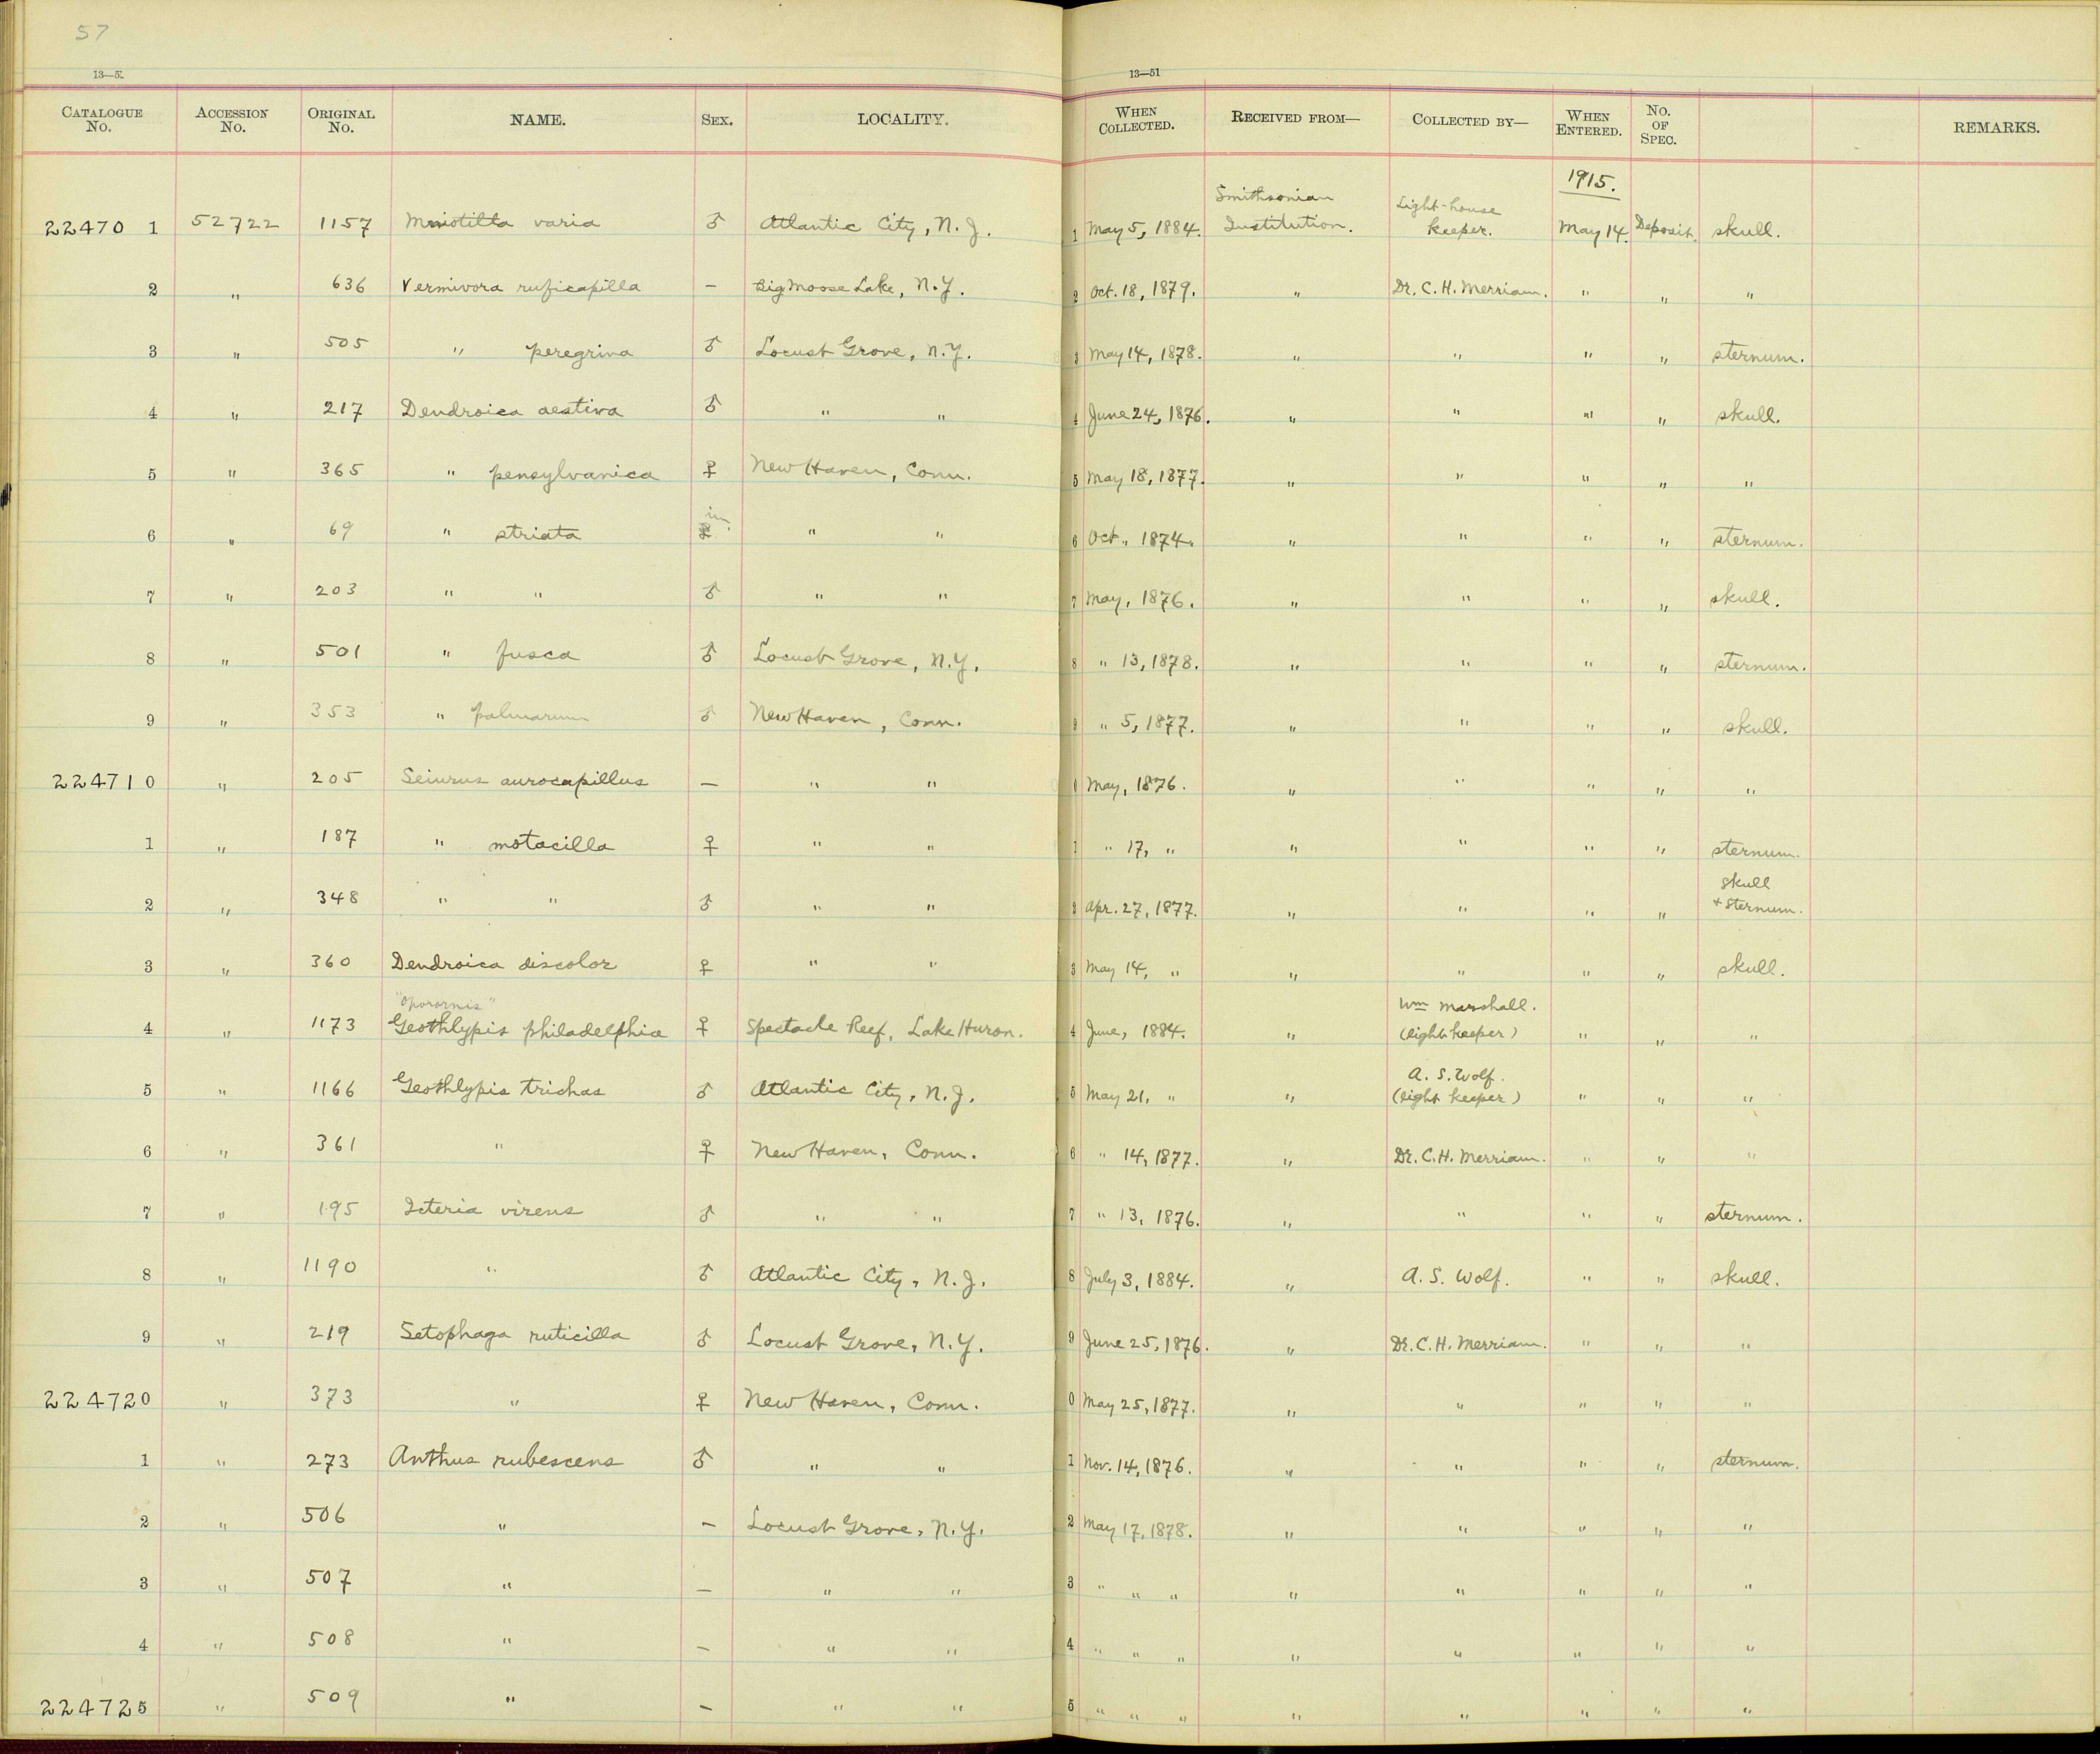 57
13—51
13—51
CATALOGUE No. ACCESSION No. ORIGINAL No. NAME. SEX. LOCALITY. WHEN COLLECTED. RECEIVED FROM— COLLECTED BY— WHEN ENTERED. No. OF SPEC. REMARKS.
1915.
22470 1 52722 1157 Mniotilta varia ♂ Atlantic City, N. J. 1 May 5, 1884. Smithsonian Institution. Light-house keeper. May 14. Deposit. skull.
2 " 636 Vermivora ruficapilla — Big Moose Lake, N.Y. 2 Oct. 18, 1879. " Dr. C. H. Merriam. " " "
3 " 505 " peregrina ♂ Locust Grove, N.Y. 3 May 14, 1878. " " " " sternum.
4 " 217 Dendroica aestiva ♂ " " 4 June 24, 1876. " " " " skull.
5 " 365 " pensylvanica ♀ New Haven, Conn. 5 May 18, 1877. " " " " "
6 " 69 " striata im. ♀ " " 6 Oct., 1874. " " " " sternum.
7 " 203 " " ♂ " " 7 May, 1876. " " " " skull.
8 " 501 " fusca ♂ Locust Grove, N.Y. 8 " 13, 1878. " " " " sternum.
9 " 353 " palmarum ♂ New Haven, Conn. 9 " 5, 1877. " " " " skull.
224710 " 205 Seiurus aurocapillus — " " May, 1876. " " " " "
1 " 187 " motacilla ♀ " " 1 " 17, " " " " " sternum.
2 " 348 " " ♂ " " 2 Apr. 27, 1877. " " " " skull + sternum.
3 " 360 Dendroica discolor ♀ " " 3 May 14, " " " " " skull.
"Oporornis"
4 " 1173 Geothlypis philadelphia ♀ Spectacle Reef, Lake Huron. 4 June, 1884. " Wm Marshall. (light keeper) " " "
5 " 1166 Geothlypis trichas ♂ Atlantic City, N. J. 5 May 21, " " A. S. Wolf. (light keeper) " " "
6 " 361 " ♀ New Haven, Conn. 6 " 14, 1877. " Dr. C. H. Merriam. " " "
7 " 195 Icteria virens ♂ " " 7 " 13, 1876. " " " " sternum.
8 " 1190 " ♂ Atlantic City, N. J. 8 July 3, 1884. " A. S. Wolf. " " skull.
9 " 219 Setophaga ruticilla ♂ Locust Grove, N.Y. 9 June 25, 1876. " Dr. C. H. Merriam. " " "
224720 " 373 " ♀ New Haven, Conn. 0 May 25, 1877. " " " " "
1 " 273 Anthus rubescens ♂ " " 1 Nov. 14, 1876. " " " " sternum.
2 " 506 " — Locust Grove, N.Y. 2 May 17, 1878. " " " " "
3 " 507 " — " " 3 " " " " " " " "
4 " 508 " — " " 4 " " " " " " " "
224725 " 509 " — " " 5 " " " " " " " "